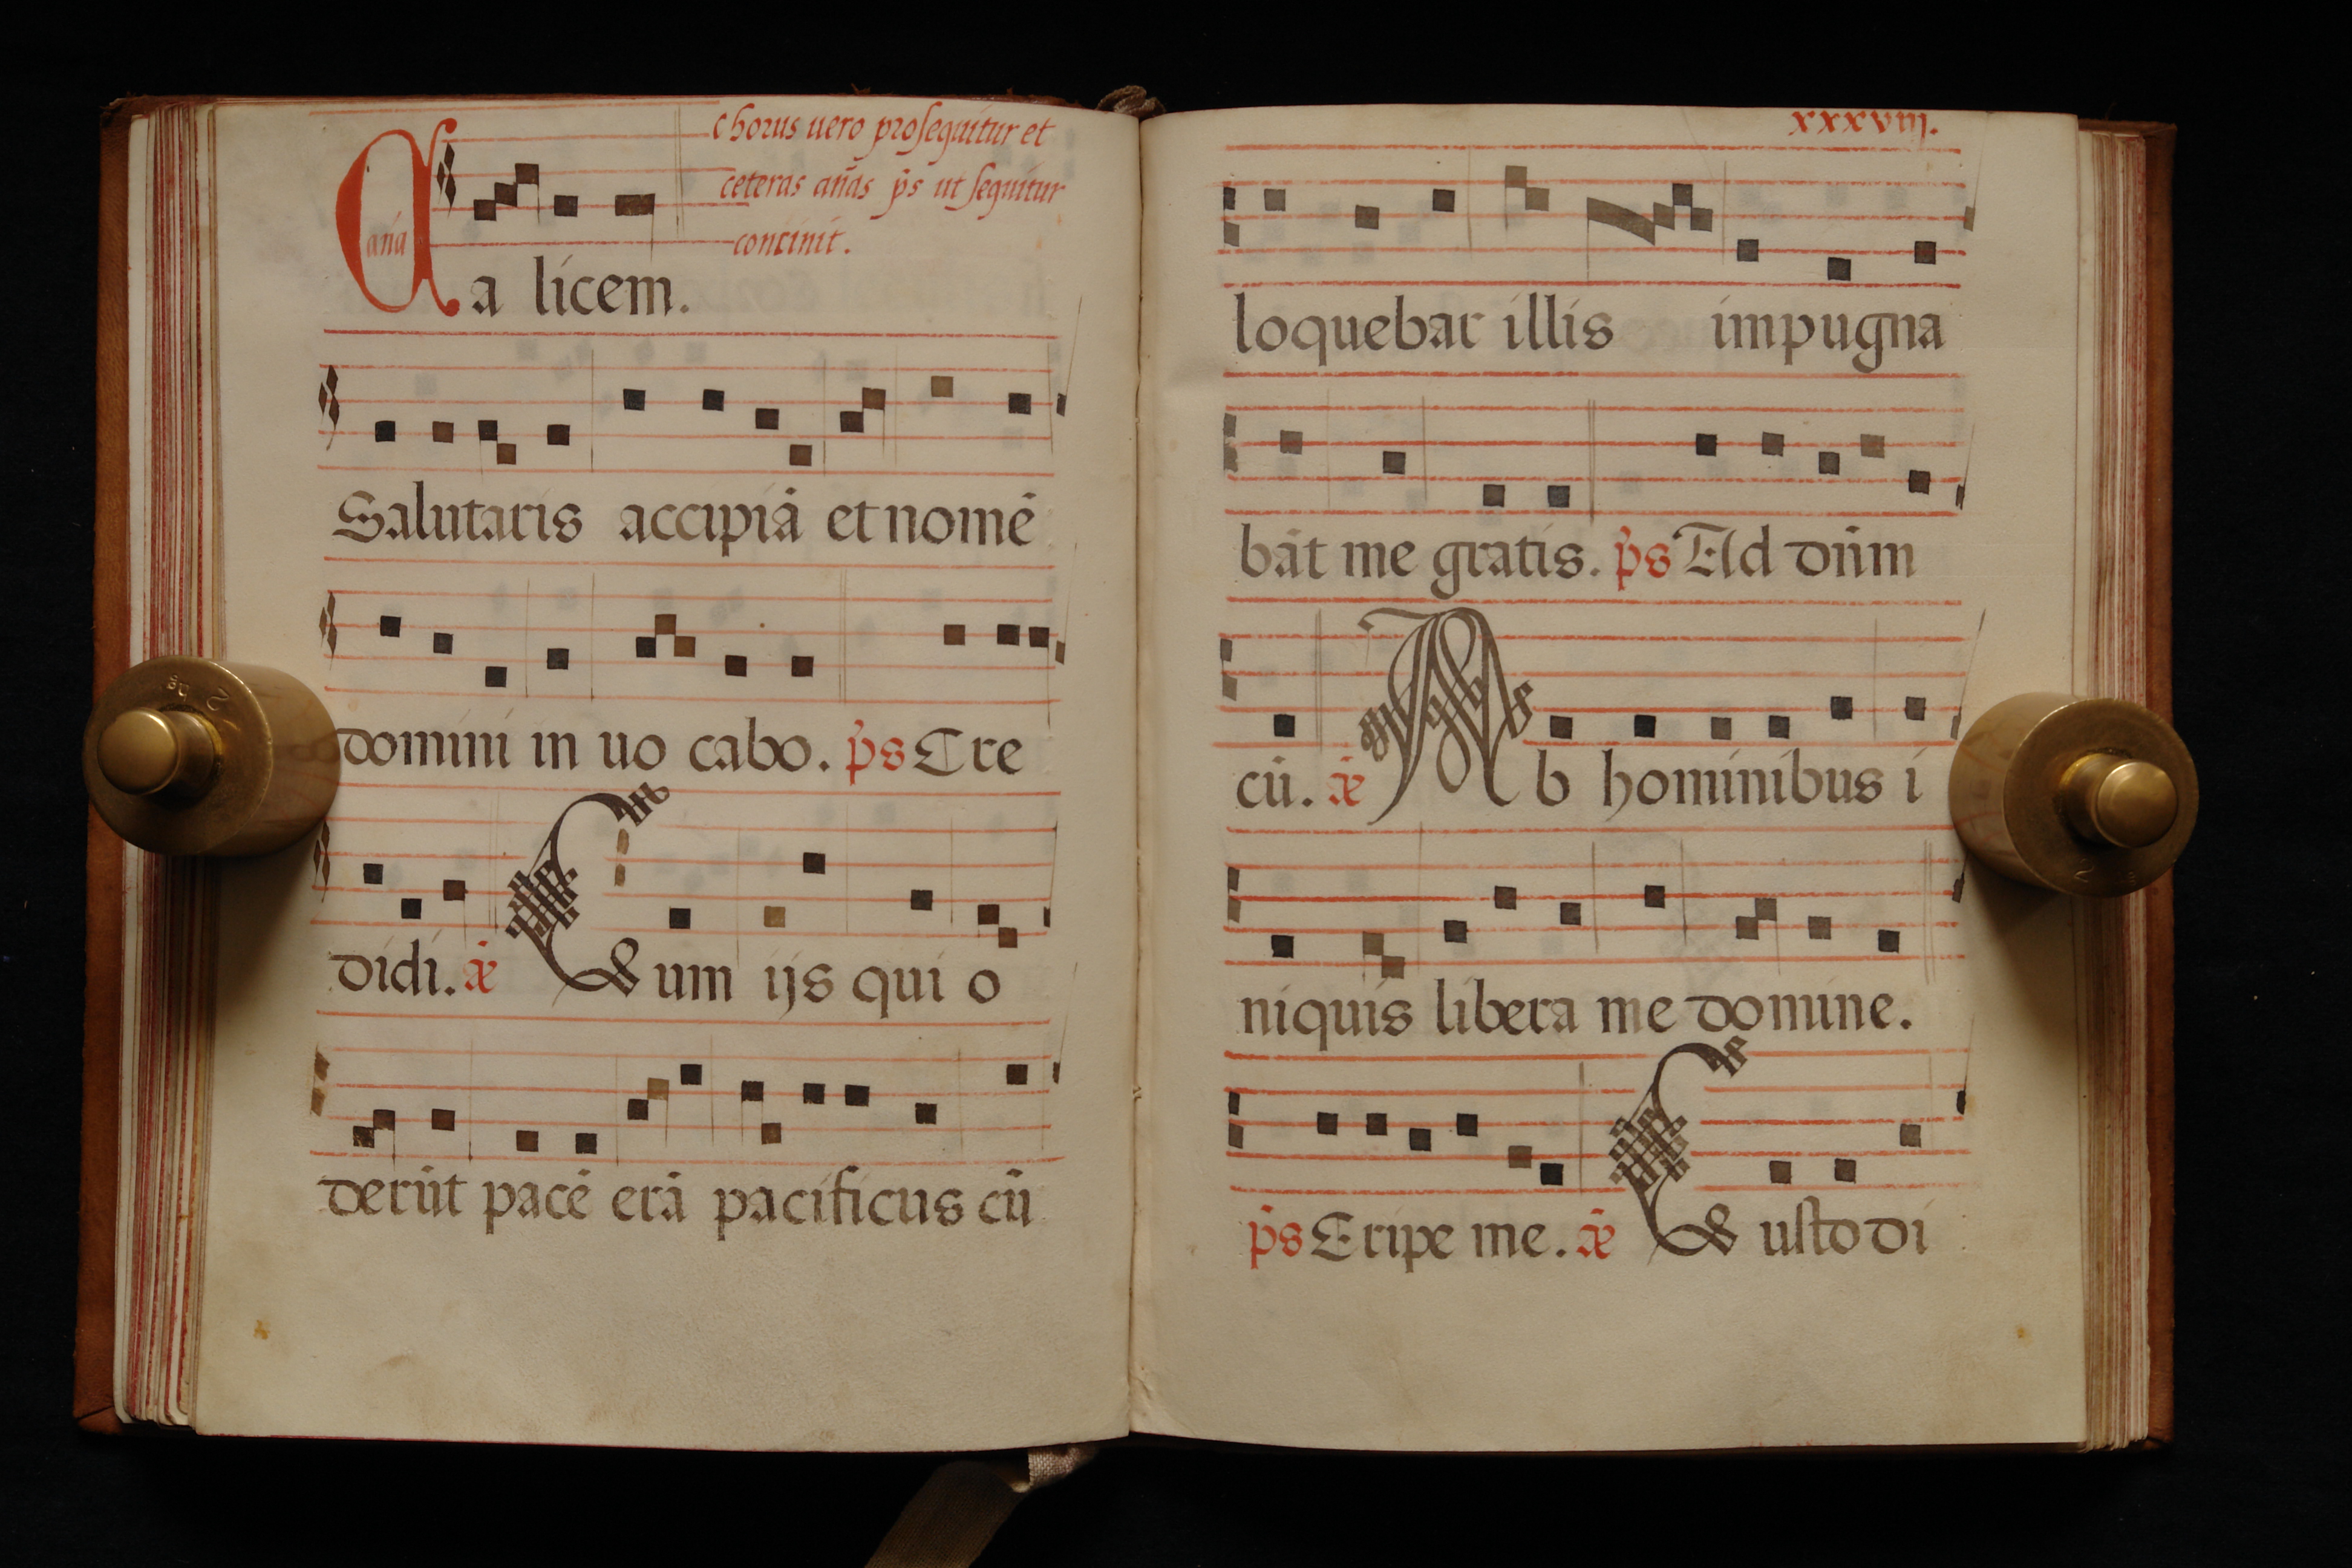 chorus uero prosequitur et
ceteras añas p̄s ut sequitur
aña continit.
Ca licem.
Salutaris accipiā et nomē
domini in uo cabo. p̄s Cre
didi. añ Cum ijs qui o
derūt pacē erā pacificus cū
xxxviij.
loquebar illis impugna
bāt me gratis. p̄s Ad dn̄m
cū. añ Ab hominibus i
niquis libera me domine.
p̄s Eripe me. añ Custodi